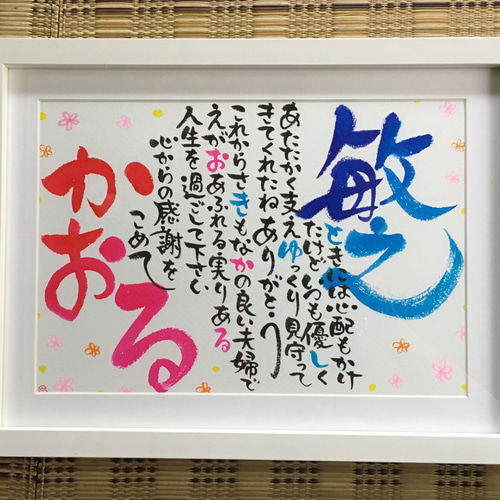 敏之
ときには心配もかけ
たけどいつも優しく
あたたかく支えゆっくり見守って
きてくれたね ありがとう
これからさきもなかの良い夫婦で
えがおあふれる実りある
人生を過ごして下さい
心からの感謝を
こめて
かおる